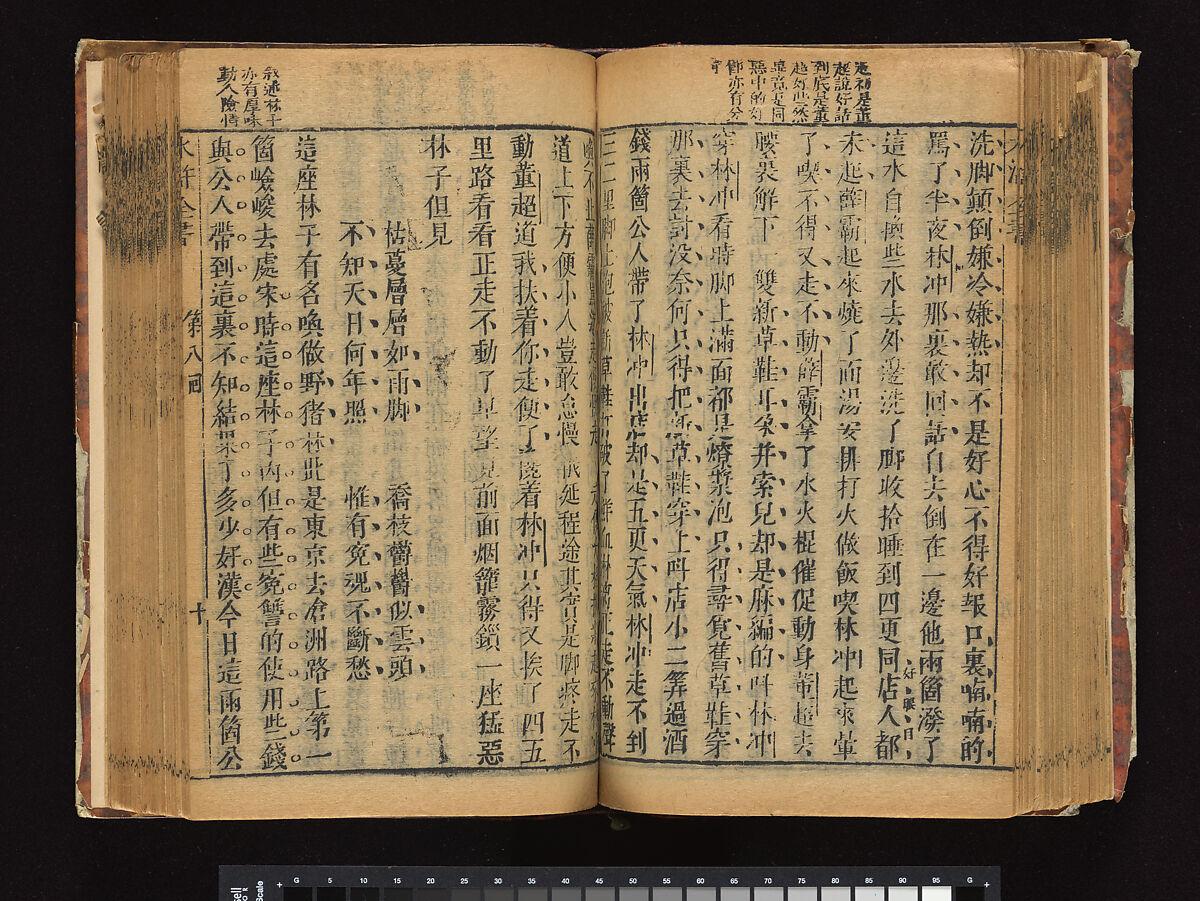 洗脚顛倒嫌冷嫌熱却不是好心不得好報口裏喃喃的
罵了半夜林冲那裏敢回話自去倒在一邊他兩箇潑了
這水自換些水去外邊洗了脚收拾睡到四更同店人都
好眼日
未起薛霸起來燒了面湯安排打火做飯喫林冲起來暈
了喫不得又走不動薛霸拿了水火棍催促動身董超去
腰裏解下一雙新草鞋耳朶并索兒却是麻編的呌林冲
穿林冲看時脚上滿面都是燎漿泡只得尋覓舊草鞋穿
那裏去討没奈何只得把新草鞋穿上呌店小二筭過酒
錢兩箇公人帶了林冲出店却是五更天氣林冲走不到
三二里脚上泡被新草鞋打破了鮮血淋正走不動聲
道上下方便小人豈敢怠慢俄延程途其實是脚疼走不
動董超道我扶着你走便了攙着林冲只得又挨了四五
里路看看正走不動了早望見前面烟籠霧鎖一座猛惡
林子但見
枯蔓層層如雨脚 喬枝鬱鬱似雲頭
不知天日何年照 惟有冤魂不斷愁
這座林子有名喚做野猪林此是東京去滄洲路上第一
箇嶮峻去處宋時這座林子内但有些冤讐的使用些錢
與公人帶到這裏不知結果了多少好漢今日這兩箇公
水滸全書 第八囘 十
起初是董
超說好話
到底是董
超好些然
畢竟是同
惡中的好
即亦有分
叙述林子
亦有厚味
動人險情
5 10 15 20 25 30 35 40 45 50 55 60 65 70 75 80 85 90 95